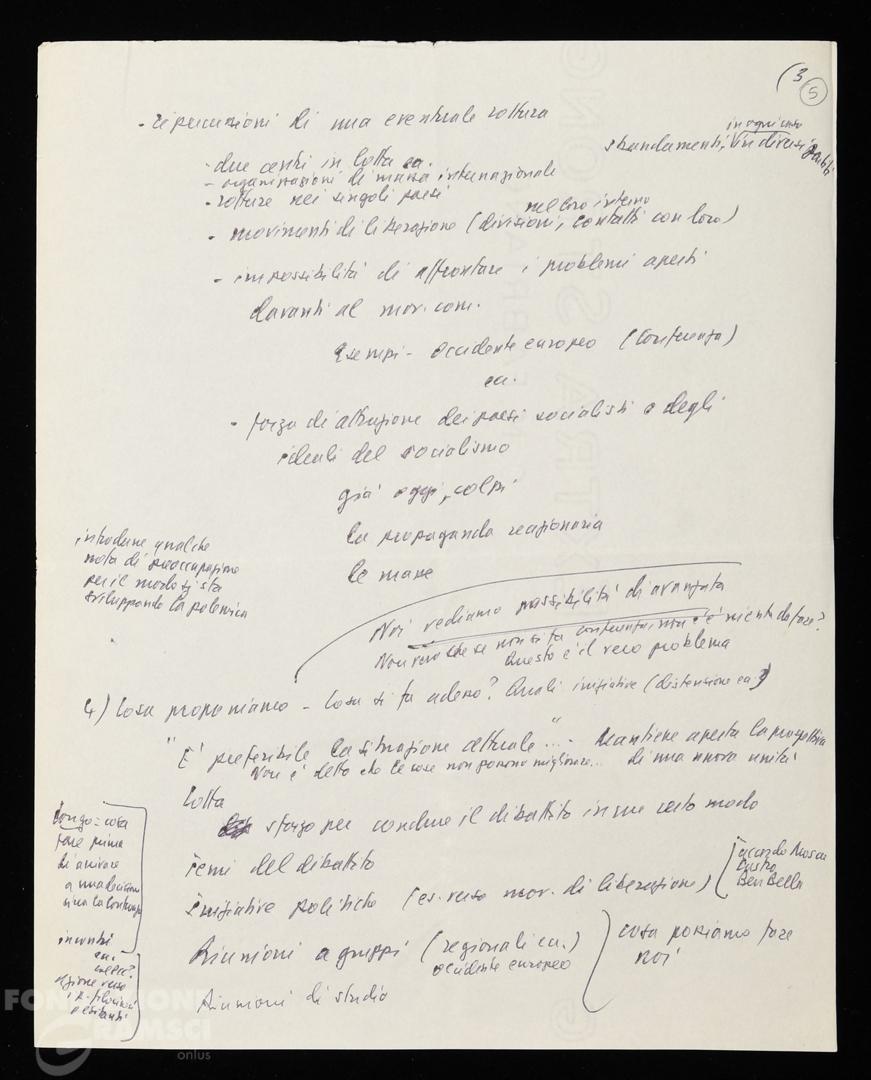 (3
5
- ripercussioni di una eventuale rottura
in ogni caso
sbandamenti, in diversi partiti
- due centri in lotta ec.
- organizzazioni di massa internazionale
- rotture nei singoli paesi
nel loro interno
- movimenti di liberazione (divisioni, contatti con loro)
- impossibilità di affrontare i problemi aperti
davanti al mov. com.
Esempi - occidente europeo (Conferenza)
ec.
- forza di attrazione dei paesi socialisti e degli
ideali del socialismo
già oggi, colpi
la propaganda reazionaria
le masse
introdurre qualche
nota di preoccupazione
per il modo si sta
sviluppando la polemica
Noi vediamo possibilità di avanzata
Non vero che se non si fa conferenza non c'è niente da fare?
Questo è il vero problema
4) Cosa proponiamo - Cosa si fa adesso? Quali iniziative (distensione ec.)
"È preferibile la situazione attuale"... - Mantiene aperta la prospettiva
Non è detto che le cose non possono migliorare... di una nuova unità
Lotta
sforzo per condurre il dibattito in un certo modo
Temi del dibattito
Iniziative politiche (es. verso mov. di liberazione)
accordo Mosca
Castro
Ben Bella
Riunioni a gruppi (regionali ec.)
occidente europeo
cosa possiamo fare
noi
Riunioni di studio
Longo = cosa
fare prima
di arrivare
a una decisione
circa la Conferenza
incontri
ec.
azione verso
FONDAZIONE
GRAMSCI
onlus